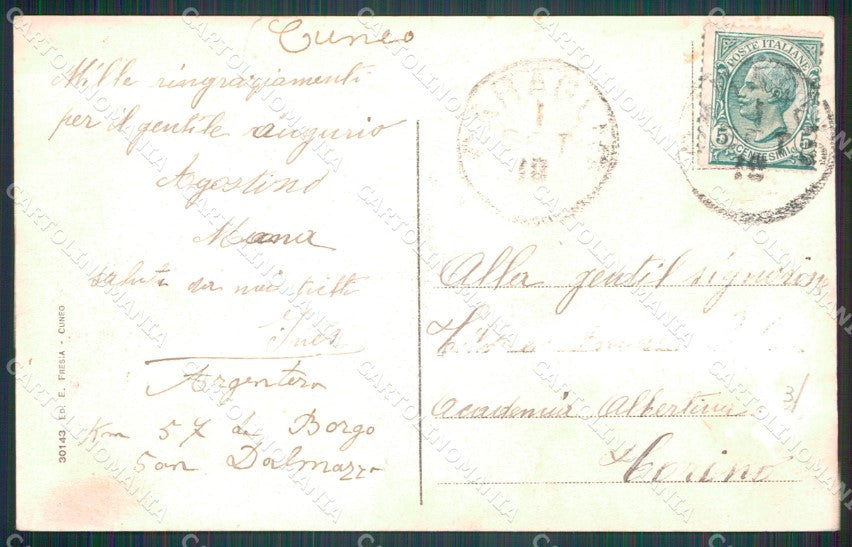 Cuneo
Mille ringraziamenti
per il gentile augurio
Agostino
saluti da noi tutti
Ines
Argentera
Km 57 da Borgo
San Dalmazzo
30143 ED. E. FRESIA - CUNEO
POSTE ITALIANE
5 CENTESIMI 5
Alla gentil signorina
Accademia Albertina 31
Torino
CARTOLINOMANIA